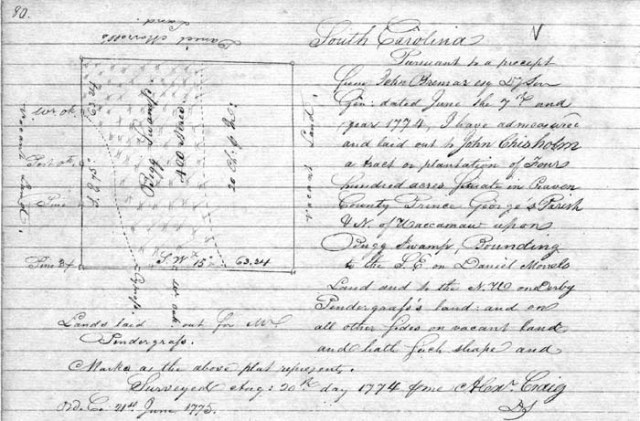 80.
V
South Carolina
Pursuant to a precept
from John Bremar esq D. Sur
Gen: dated June the 7th and
year 1774, I have admeasured
and laid out to John Chisholm
a tract or plantation of Four
hundred acres situate in Craven
County Prince George's Parish
& N. of Waccamaw upon
Bugg Swamp, Bounding
to the S.E on Daniel Morrels
Land and to the N.W on
Pendergrass's land: and on
all other sides on vacant land
and hath such shape and
Marks as the above plat represents.
Surveyed Aug: 20th day 1774 pme Alexr. Craig
DS
Ord. Co. 21st June 1775.
Daniel Morrells
Land.
Bugg Swamp
400 acres
Vacant Land.
Land
vacant
Wr ok
Post ok
Pine
Pine 3x
S W 15° 63.24
Pendergrass
wr oak
Lands laid out for Mr
Pendergrass.